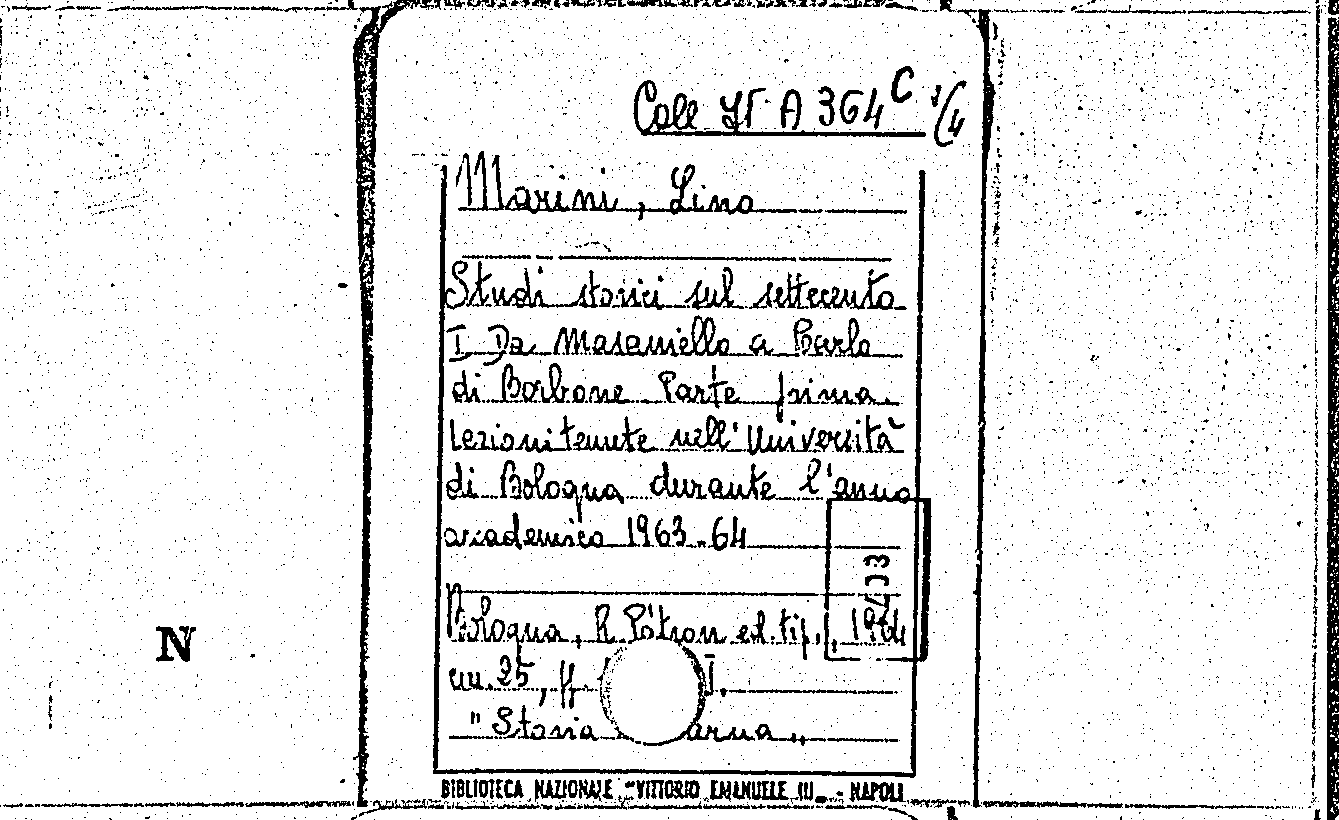 Coll. It. A 364 C 1/4
Marini, Lino
Studi storici sul settecento
I Da Masaniello a Carlo
di Borbone Parte prima.
lezioni tenute nell'Università
di Bologna durante l'anno
accademico 1963-64
Bologna, R. Pátron ed. tip., 1964
cm. 25, ff. I.
"Storia
N
BIBLIOTECA NAZIONALE "VITTORIO EMANUELE III" - NAPOLI